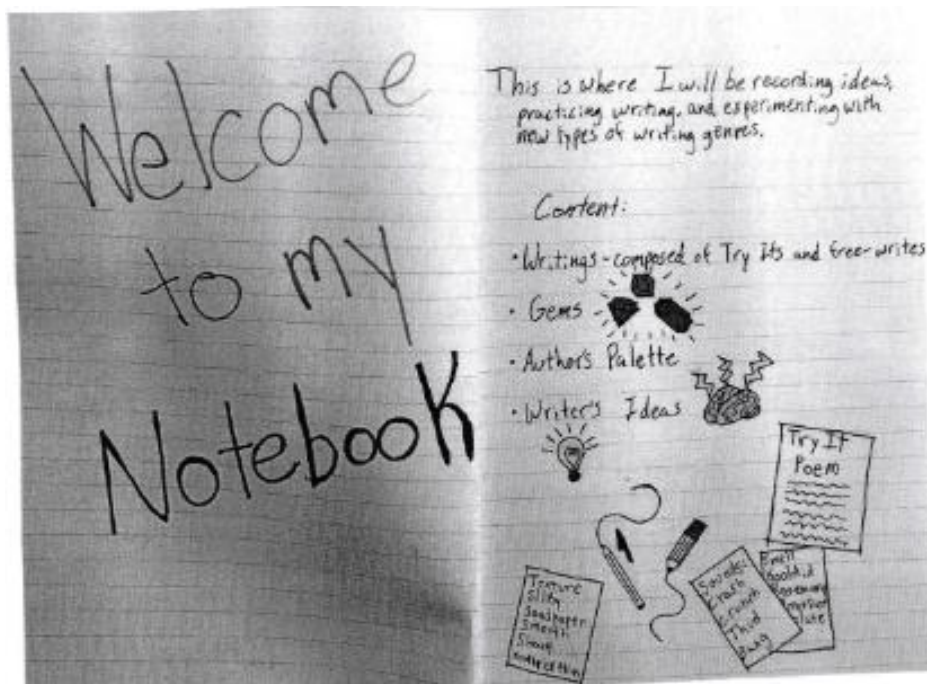 Welcome
to my
Notebook
This is where I will be recording ideas,
practicing writing, and experimenting with
new types of writing genres.
Content:
• Writings - composed of Try Its and free-writes
• Gems
• Author's Palette
• Writer's Ideas
Try It
Poem
Texture
Silky
Sandpaper
Smooth
Sounds:
Crash
Crunch
Thud
Bang
Smell